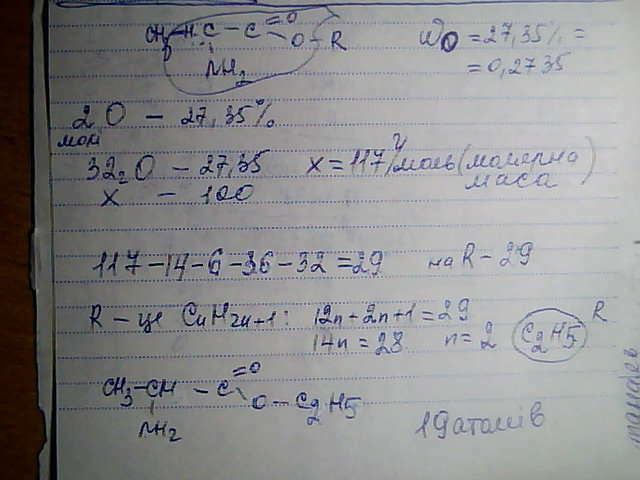 CH3-HC-C=O O-R
NH2
WO = 27,35% =
= 0,2735
2 O - 27,35%
моль
32г O - 27,35
x - 100
x = 117 г/моль (молярна маса)
117-14-6-36-32=29 на R-29
R - це CnH2n+1: 12n+2n+1=29
14n=28 n=2 C2H5 R
CH3-CH-C=O O-C2H5
NH2
19 атомів